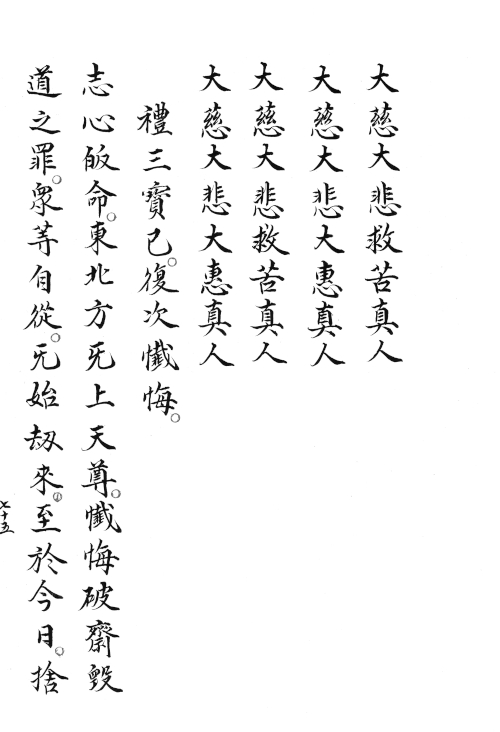 大慈大悲救苦真人
大慈大悲大惠真人
大慈大悲救苦真人
大慈大悲大惠真人
禮三寶已。復次懺悔。
志心皈命。東北方旡上天尊。懺悔破齋毀
道之罪。衆等自從。旡始刼來。至於今日。捨
七十五